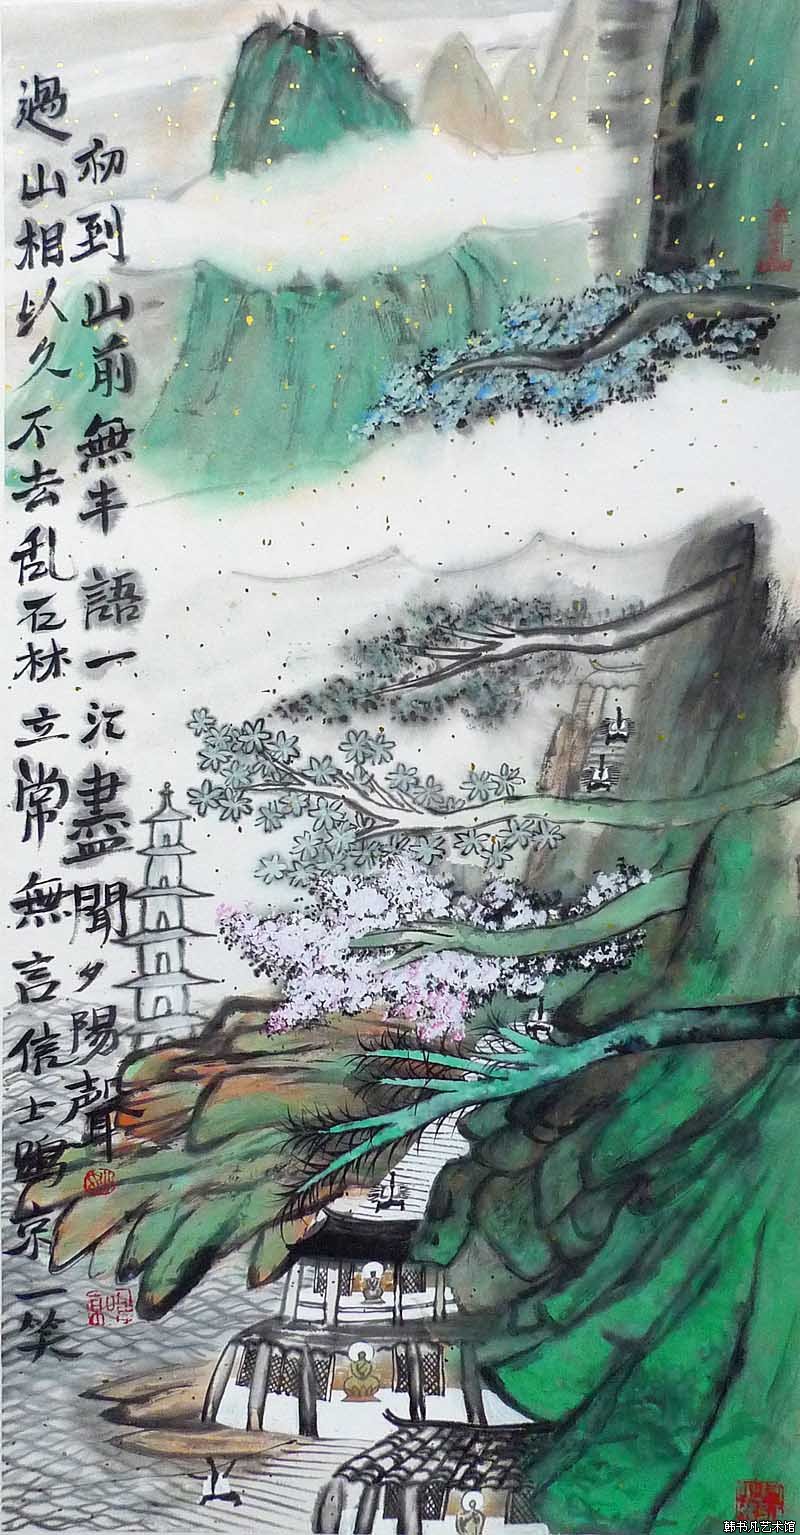 初到山前無半語一江盡聞夕陽聲
過山相以久不去乱石林立常無言信士京一笑
韩书凡艺术馆